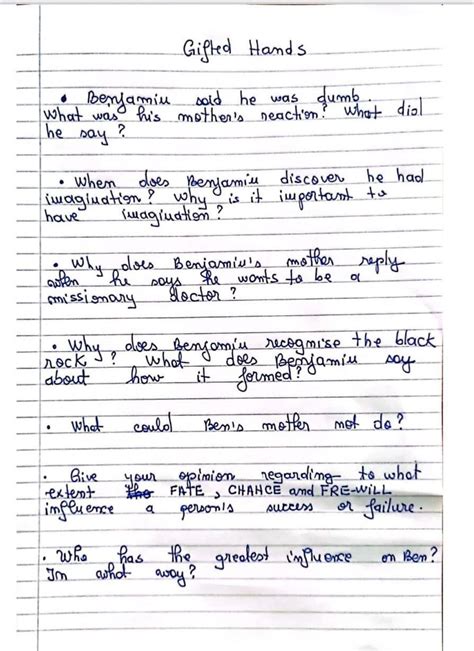 Gifted Hands
• Benjamin said he was dumb.
What was his mother's reaction? What did
he say?
• When does Benjamin discover he had
imagination? Why is it important to
have imagination?
• Why does Benjamin's mother reply
when he says he wants to be a
missionary doctor?
• Why does Benjamin recognise the black
rock? What does Benjamin say
about how it formed?
• What could Ben's mother not do?
• Give your opinion regarding to what
extent the FATE, CHANCE and FRE-WILL
influence a person's success or failure.
• Who has the greatest influence on Ben?
In what way?